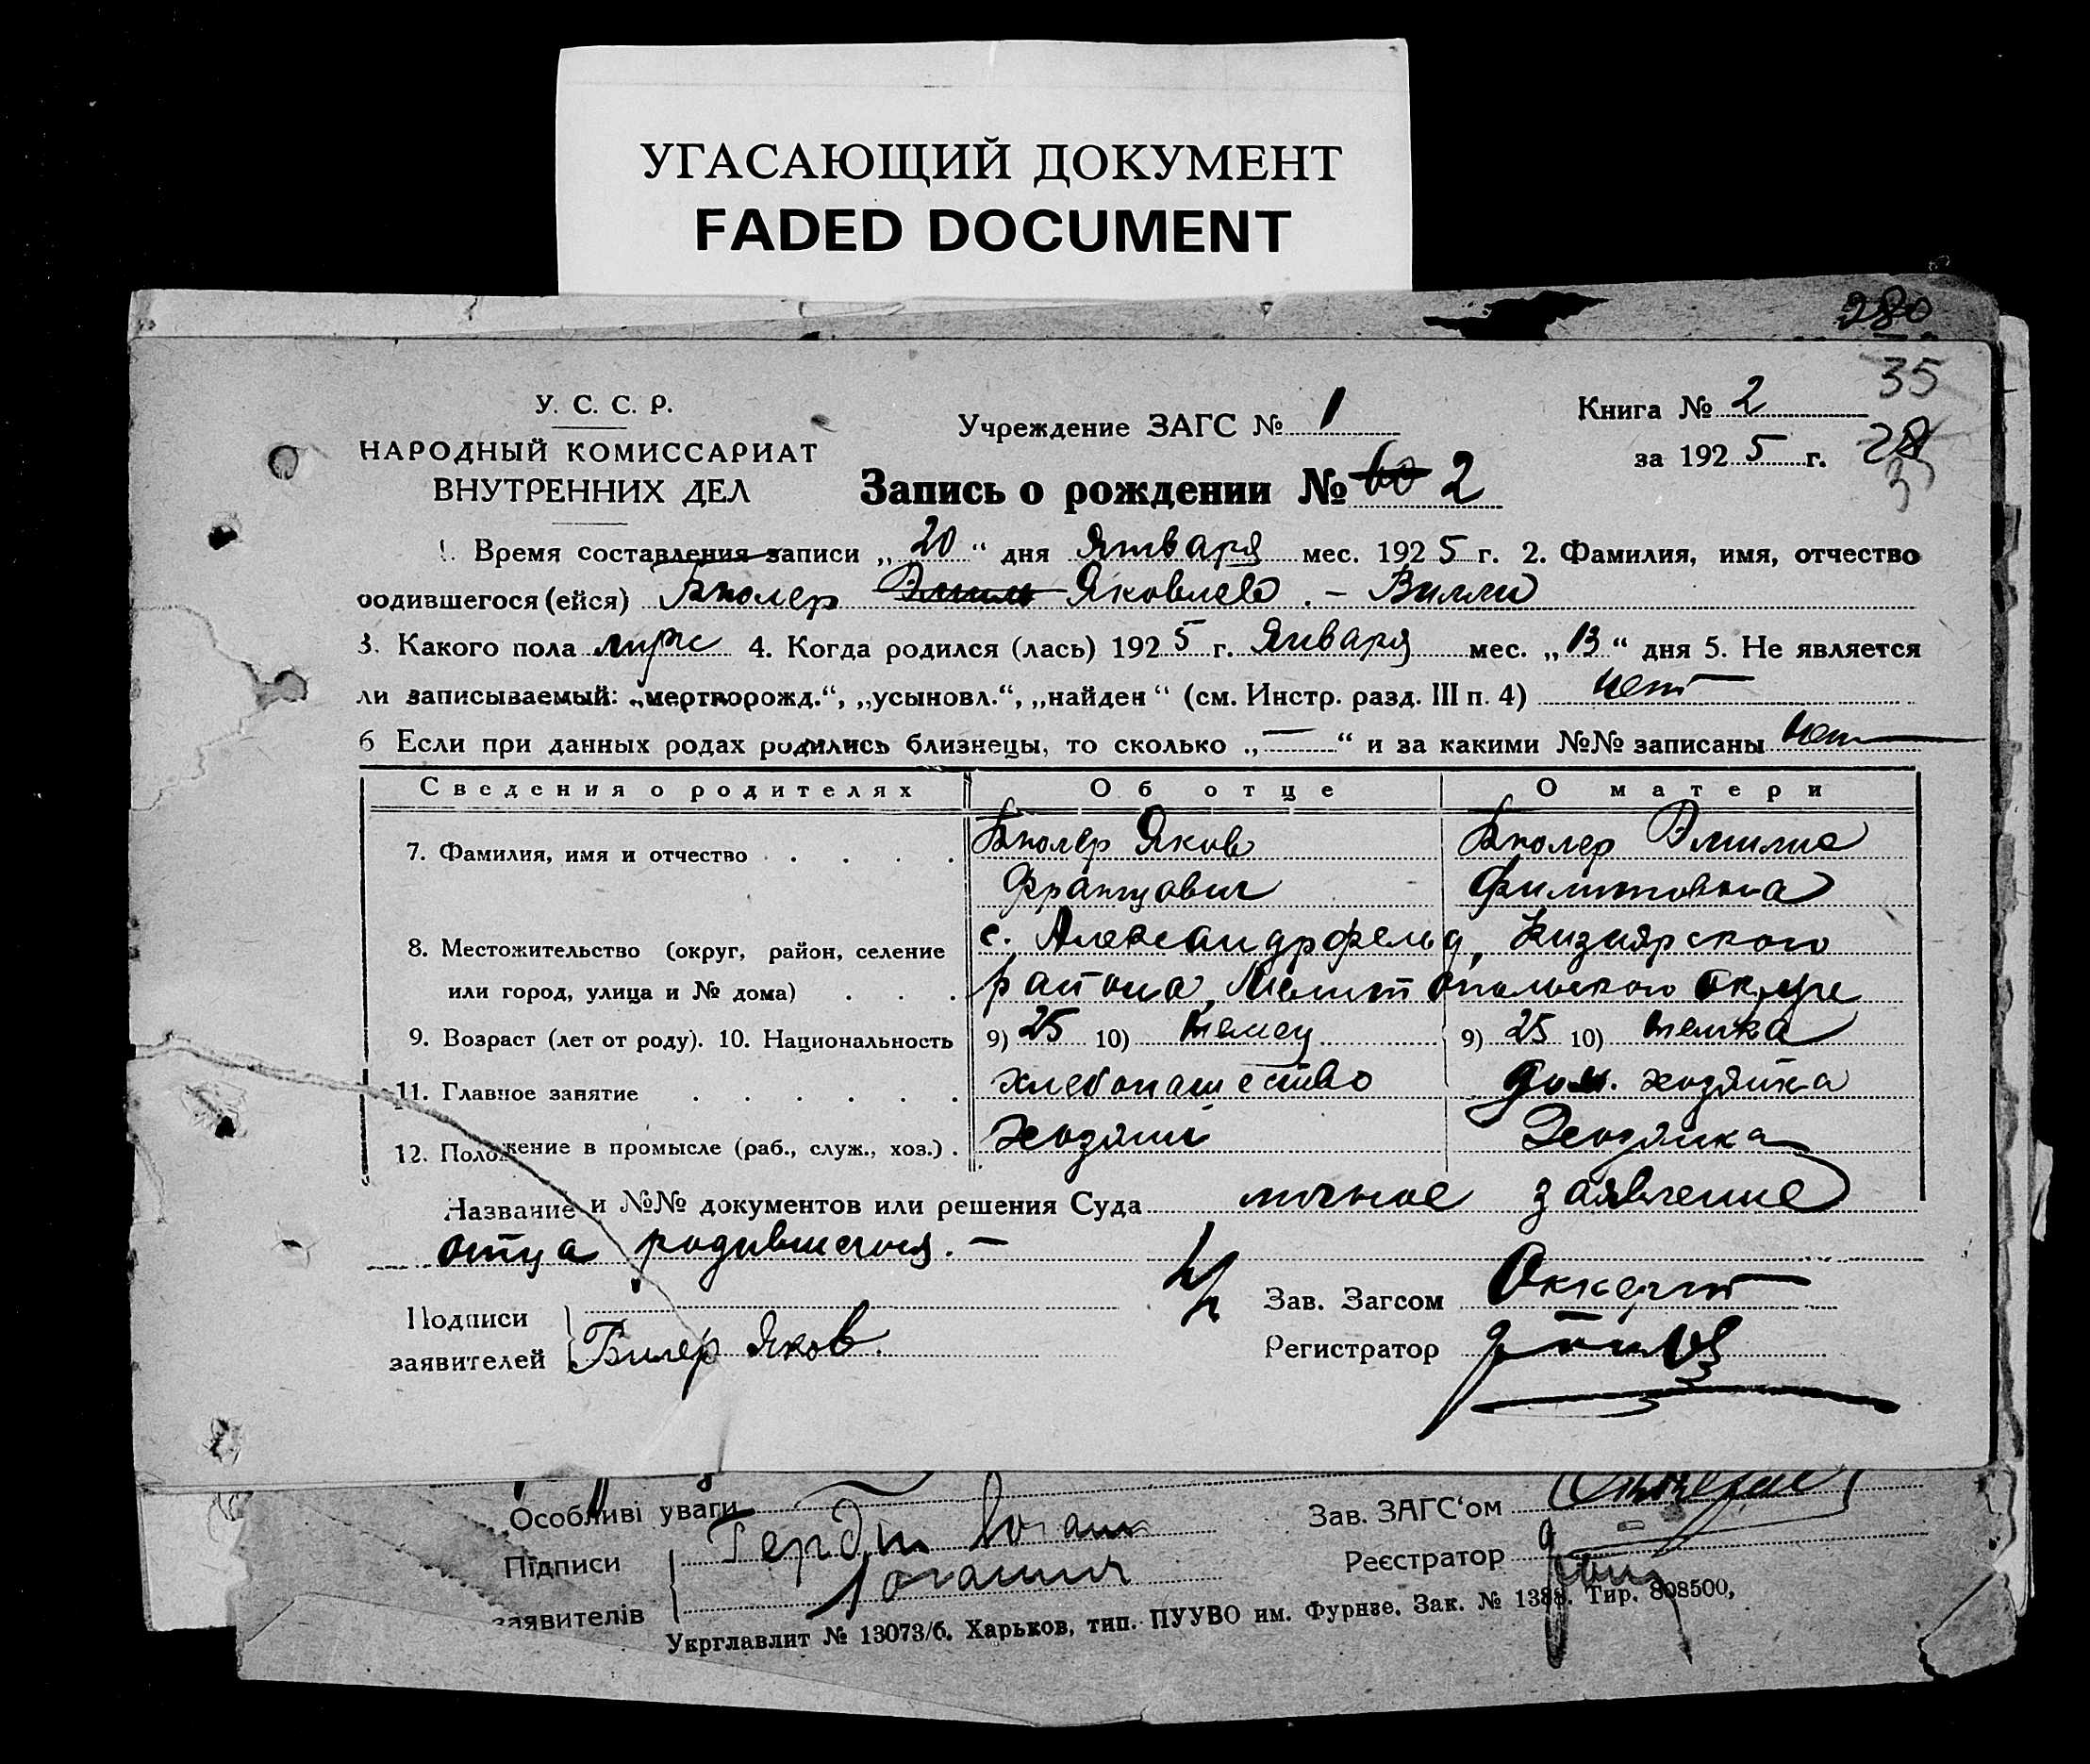 УГАСАЮЩИЙ ДОКУМЕНТ
FADED DOCUMENT
280
35
У. С. С. Р.
НАРОДНЫЙ КОМИССАРИАТ
ВНУТРЕННИХ ДЕЛ
Учреждение ЗАГС № 1
Книга № 2
за 1925 г.
Запись о рождении № 60 2
1. Время составления записи „20“ дня Января мес. 1925 г. 2. Фамилия, имя, отчество
родившегося (ейся) Бюлер Эмиль Яковлев. – Вилли
3. Какого пола муж 4. Когда родился (лась) 1925 г. Января мес. „13“ дня 5. Не является
ли записываемый: „мертворожд.“, „усыновл.“, „найден“ (см. Инстр. разд. III п. 4) нет
6 Если при данных родах родились близнецы, то сколько „—“ и за какими №№ записаны нет
Сведения о родителях Об отце О матери
7. Фамилия, имя и отчество Бюлер Яков Бюлер Эмилие
Францович Филиповна
8. Местожительство (округ, район, селение с. Александрфельд, Кизиярского
или город, улица и № дома) района, Мелитопольского округа
9. Возраст (лет от роду). 10. Национальность 9) 25 10) немец 9) 25 10) немка
11. Главное занятие хлебопашество дом. хозяйка
12. Положение в промысле (раб., служ., хоз.) Хозяин Хозяйка
Название и №№ документов или решения Суда личное заявление
отца родившегося. —
Подписи
заявителей Билер Яков.
Зав. Загсом
Регистратор
Особливі уваги
Зав. ЗАГС‘ом
Підписи
заявителів
Реєстратор
Укрглавлит № 13073/б. Харьков, тип. ПУУВО им. Фурнзе. Зак. № 1388. Тир. 808500,